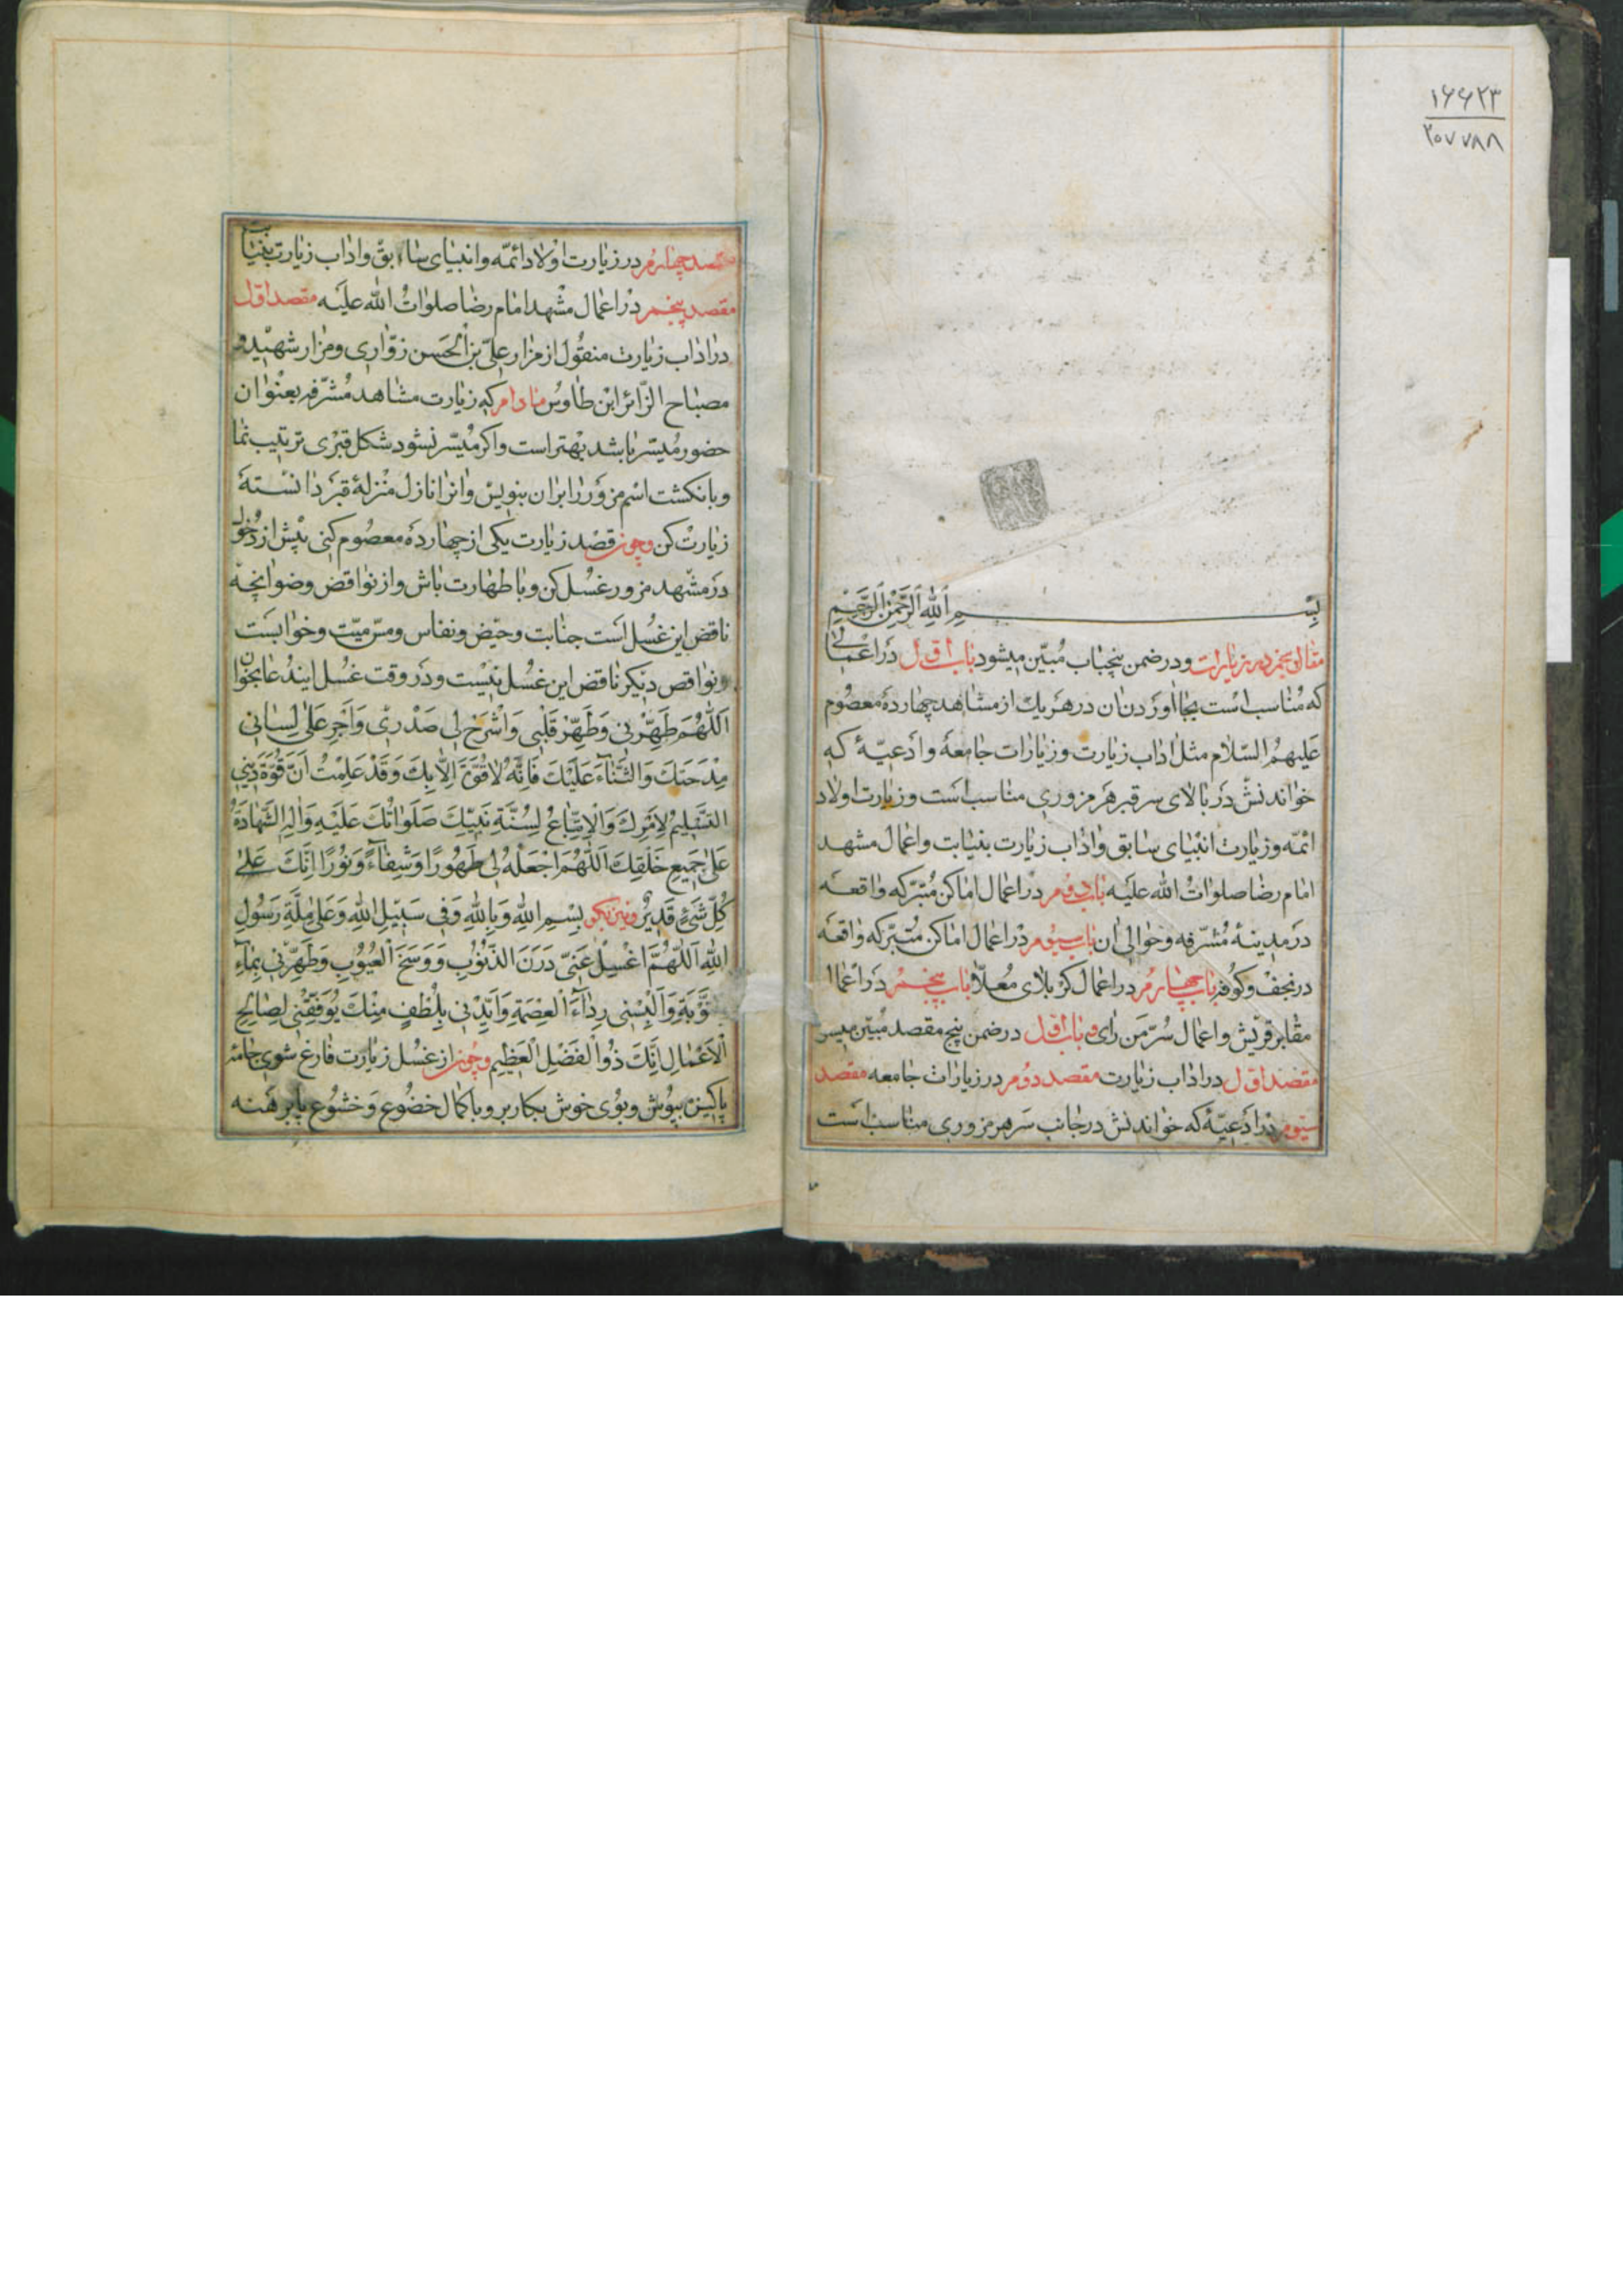 ۱۶۶۲۳
۳۰۷۷۸۸
بِسْمِ اَللّٰهِ اَلرَّحْمٰنِ اَلرَّحيم
مقاله پنجم در زیارات و در ضمن پنجباب مُبیّن میشود باب اوّل دَر اعمالی
که مُناسب است بجا اوردن ان در هر یك از مشاهد چهارده معصُوم
عَلیهمُ السّلام مثل اداب زیارت و زیارات جامعهٔ و ادعیّهٔ که
خواندنش دَر بالای سر قبر هَر مزوری مناسب است و زیارت اولاد
ائمّه و زیارت انبیای سابق و اداب زیارت بنیابت و اعمال مشهد
امام رضا صلوات اللّه علیه باب دوم در اعمال اماکن مُتبرّکه واقعه
دَر مدینهٔ مُشرّفه و حوالی ان باب سیوم در اعمال اماکن مُتبرّکه واقعه
در نجف و کوُفه باب چهارم در اعمال کربلای مُعلّا باب پنجم دَر اعمال
مقابر قریش و اعمال سُرّ مَن رای باب اوّل در ضمن پنج مقصد مُبیّن میسر
مقصد اوّل در اداب زیارت مقصد دوُم در زیارات جامعه مقصد
سیوم در ادعیّهٔ که خواندنش در جانب سَر هر مزوری مناسب است
مقصد چهارم در زیارت اولاد ائمّه و انبیای سابق و اداب زیارت بنیابت
مقصد پنجم در اعمال مشهد امام رضا صلوات اللّه علیه مقصد اوّل
در اداب زیارت منقُول از مزار علیّ بن الحَسن زوّاری و مزار شهید و
مصباح الزّائر ابن طاوُس مادام که زیارت مشاهد مُشرّفه بعنوان
حضور مُیسّر باشد بهتر است و اکر مُیسّر نشود شکل قبری ترتیب نما
و بانکشت اسم مزوَر را بران بنویس و انرا نازل منزلهٔ قبر دانسته
زیارت کن و چون قصد زیارت یکی از چهارده معصُوم کنی پیش از دُخول
دَر مشهد مزور غسُل کن و با طهارت باش و از نواقض وضو انچه
ناقض این غسُل است جنابت و حیض و نفاس و مسّ میّت و خوابست
و نواقض دیکر ناقض این غسُل نیست و دَر وقت غسُل ایندُعا بخوان
اَللّٰهُمَّ طَهِّرْنی وَ طَهِّرْ قَلْبی وَ اشْرَحْ لی صَدْری وَ اَجْرِ عَلیٰ لِسانی
مِدْحَتَكَ وَ الثَّنآءَ عَلَیْكَ فَاِنَّهُ لا قُوَّةَ اِلّا بِكَ وَ قَدْ عَلِمْتُ اَنَّ قُوَّةَ دینی
التَّسْلیمُ لِاَمْرِكَ وَ الْاِتِّباعُ لِسُنَّةِ نَبِیِّكَ صَلَواتُكَ عَلَیْهِ وَ الِهِ الشَّهادَةُ
عَلیٰ جَمیعِ خَلْقِكَ اَللّٰهُمَّ اجْعَلْهُ لی طَهُورًا وَ شِفآءً وَ نُورًا اِنَّكَ عَلیٰ
کُلِّ شَیْءٍ قَدیرٌ و نیز بکو بِسْمِ اللّٰهِ وَ بِاللّٰهِ وَ فی سَبیلِ اللّٰهِ وَ عَلیٰ مِلَّةِ رَسُولِ
اللّٰهِ اَللّٰهُمَّ اغْسِلْ عَنّی دَرَنَ الذُّنُوبِ وَ وَسَخَ الْعُیُوبِ وَ طَهِّرْنی بِمآءِ
التَّوْبَةِ وَ اَلْبِسْنی رِدآءَ الْعِصْمَةِ وَ اَیِّدْنی بِلُطْفٍ مِنْكَ یُوَفِّقُنی لِصالِحِ
الْاَعْمالِ اِنَّكَ ذُو الْفَضْلِ الْعَظیمِ و چون از غسُل زیارت فارغ شوی جامهٔ
پاکیزه بپوش و بوُی خوش بکار بر و با کمال خضُوع وَ خشوُع پابرهَنه